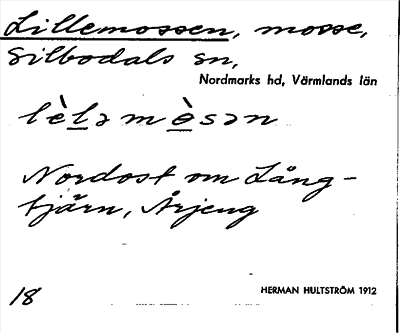 Lillemossen, mosse,
Silbodals sn,
Nordmarks hd, Värmlands län
lèlə mèsən
Nordost om Lång-
tjärn, Årjeng
18
HERMAN HULTSTRÖM 1912